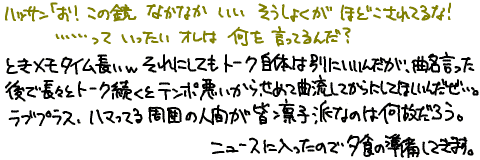 ハッサン「お！この銃 なかなか いい そうしょくが ほどこされてるな！
……って いったい オレは 何を 言ってるんだ？
ときメモタイム長いｗ それにしてもトーク自体は別にいいんだが、曲名言った
後で長々とトーク続くとテンポ悪いからせめて曲流してからにしてほしいんだぜ…。
ラブプラス、ハマってる周囲の人間が皆凛子派なのは何故だろう。
ニュースに入ったので夕食の準備してきます。